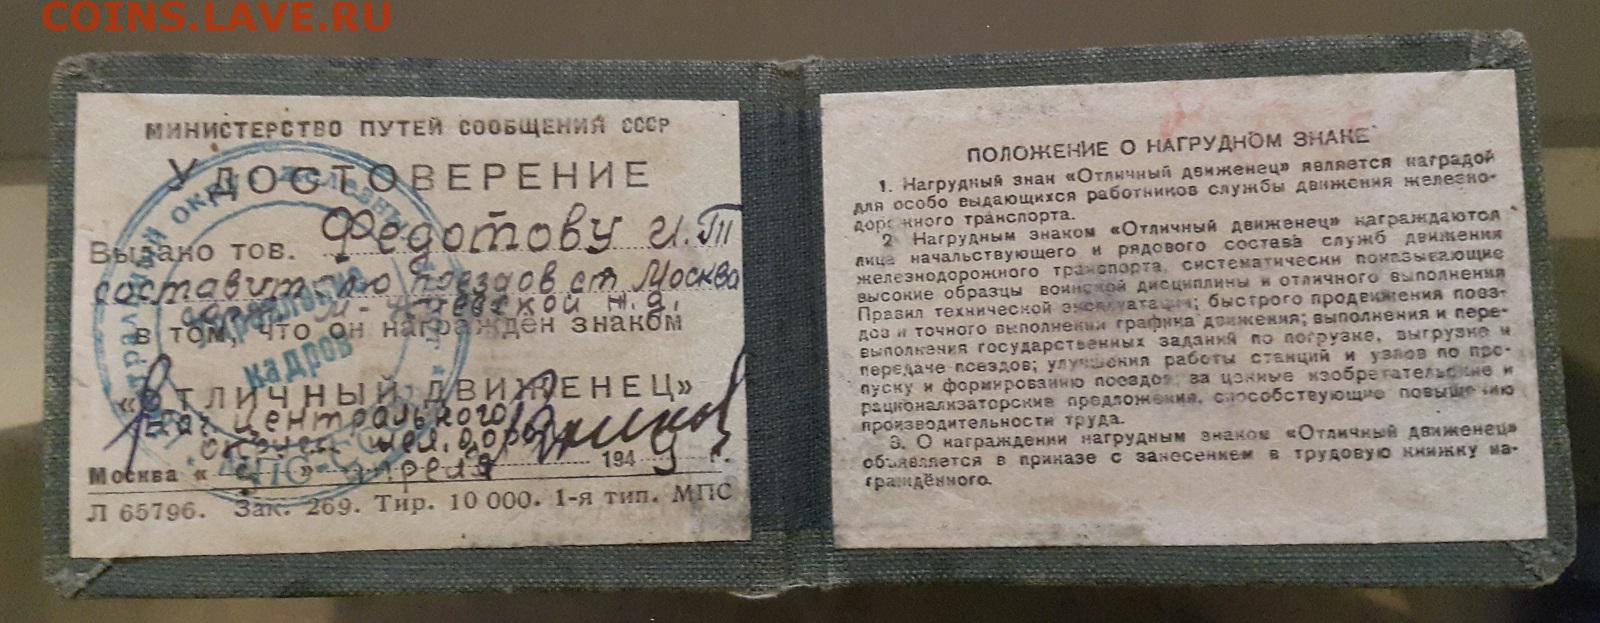 COINS.LAVE.RU
МИНИСТЕРСТВО ПУТЕЙ СООБЩЕНИЯ СССР
УДОСТОВЕРЕНИЕ
Выдано тов. Федотову И.П
составителю поездов ст Москва
сорт. М-Киевской ж.д.
в том, что он награжден знаком
«ОТЛИЧНЫЙ ДВИЖЕНЕЦ»
Нач. Центрального
округа жел. дорог
Москва « » апреля 1949 г.
Л 65796. Зак. 269. Тир. 10 000. 1-я тип. МПС
кадров
ПОЛОЖЕНИЕ О НАГРУДНОМ ЗНАКЕ
1. Нагрудный знак «Отличный движенец» является наградой
для особо выдающихся работников службы движения железно-
дорожного транспорта.
2 Нагрудным знаком «Отличный движенец» награждаются
лица начальствующего и рядового состава служб движения
железнодорожного транспорта, систематически показывающие
высокие образцы воинской дисциплины и отличного выполнения
Правил технической эксплуатации; быстрого продвижения поез-
дов и точного выполнения графика движения; выполнения и пере-
выполнения государственных заданий по погрузке, выгрузке и
передаче поездов; улучшения работы станций и узлов по про-
пуску и формированию поездов; за ценные изобретательские и
рационализаторские предложения, способствующие повышению
производительности труда.
3. О награждении нагрудным знаком «Отличный движенец»
объявляется в приказе с занесением в трудовую книжку на-
граждённого.